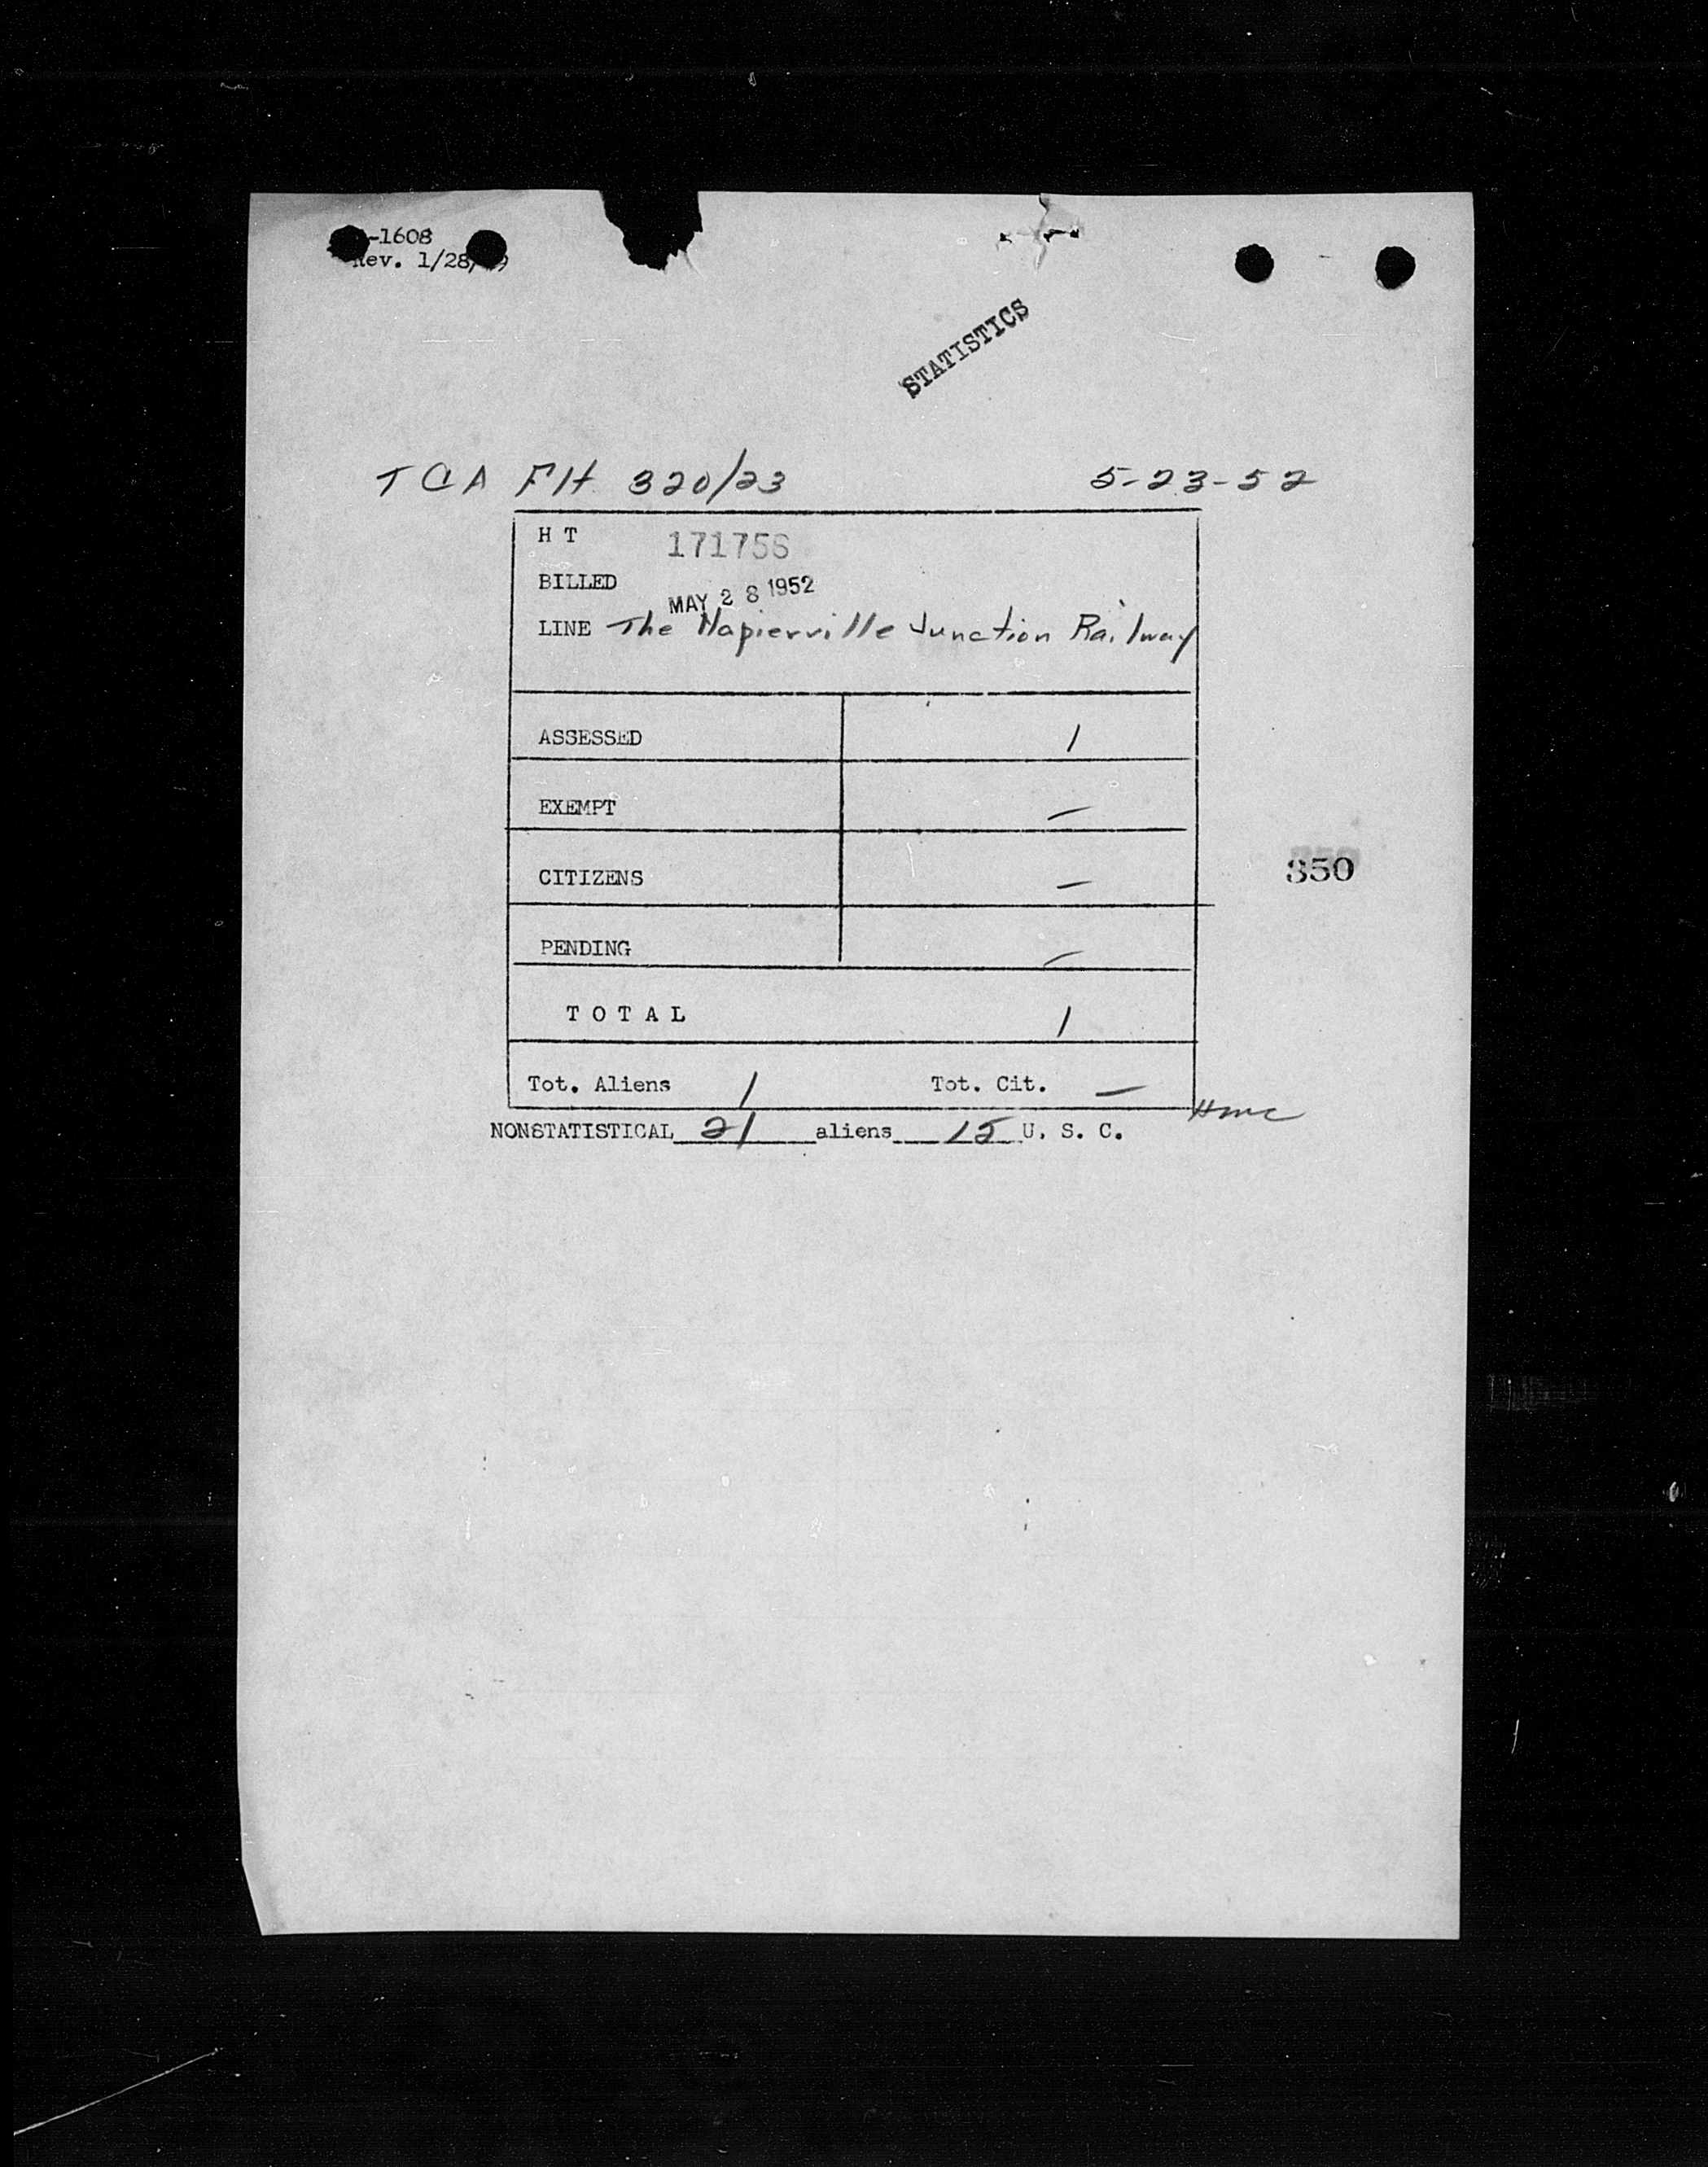 -1608
Rev. 1/28/
STATISTICS
TCA FH 320/23 5-23-52
H T 171756
BILLED MAY 28 1952
LINE The Napierville Junction Railway
ASSESSED 1
EXEMPT —
CITIZENS —
350
PENDING —
TOTAL 1
Tot. Aliens 1 Tot. Cit. —
NONSTATISTICAL 21 aliens 15 U. S. C.